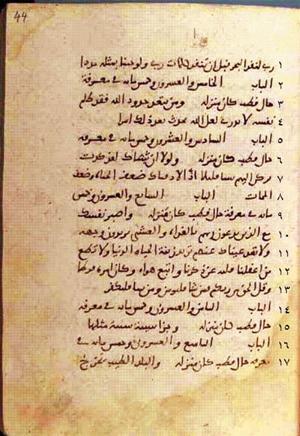 44
١ ربي لنفد البحر قبل ان تنفد كلمات ربي ولو جئنا بمثله مددا
٢ الباب الخامس والعشرون وخمس مائه في معرفة
٣ حال قطب كان منزله ومن يتعد حدود الله فقد ظلم
٤ نفسه لا تدري لعل الله يحدث بعد ذلك امرا
٥ الباب السادس والعشرون وخمس مائه في معرفه
٦ حال قطب كان منزله ولولا ان ثبتناك لقد كدت
٧ تركن اليهم شيا قليلا اذا لاذقناك ضعف الحياه وضعف
٨ الممات الباب السابع والعشرون وخمس
٩ مائه في معرفة حال قطب كان منزله واصبر نفسك
١٠ مع الذين يدعون ربهم بالغداه والعشي يريدون وجهه
١١ ولا تعد عيناك عنهم تريد زينة الحياه الدنيا ولا تطع
١٢ من اغفلنا قلبه عن ذكرنا واتبع هواه وكان امره فرطا
١٣ وقل الحق من ربكم فمن شا فليومن ومن شا فليكفر
١٤ الباب الثامن والعشرون وخمس مائه في معرفه
١٥ حال قطب كان منزله وجزا سيئة سيئة مثلها
١٦ الباب التاسع والعشرون وخمس مائه في
١٧ معرفه حال قطب كان منزله والبلد الطيب يخرج